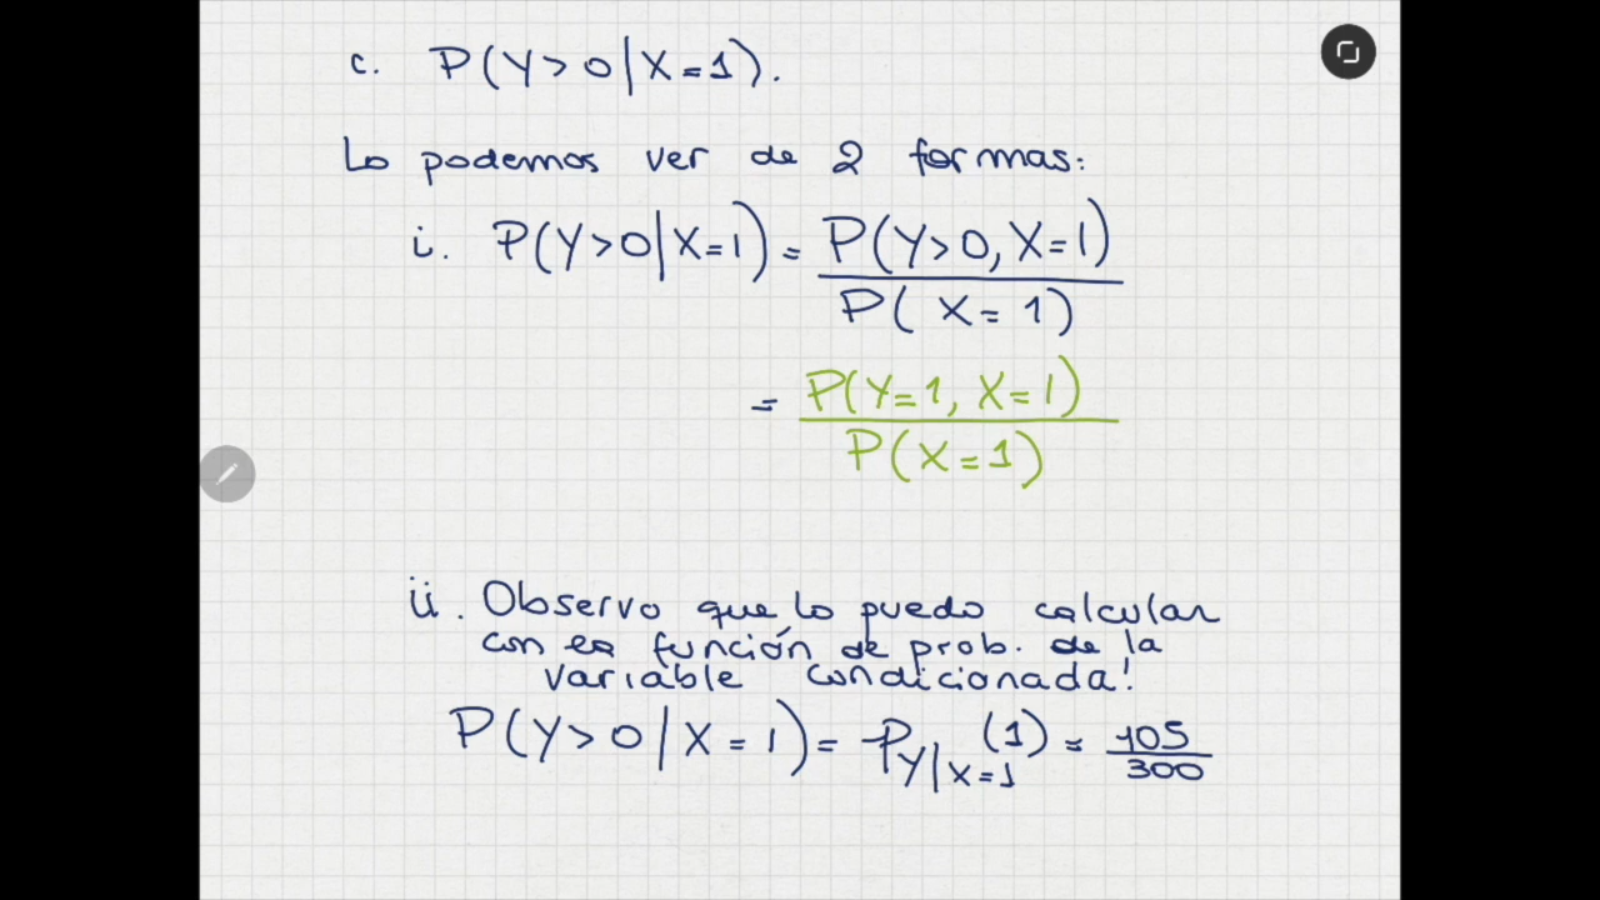 c. P(Y>0|X=1).
Lo podemos ver de 2 formas:
i. P(Y>0|X=1) = P(Y>0, X=1)
P( X= 1)
= P(Y=1, X=1)
P(X=1)
ii. Observo que lo puedo calcular
con la función de prob. de la
variable condicionada!
P(Y>0|X=1) = P_{Y|X=1}(1) = 105
300